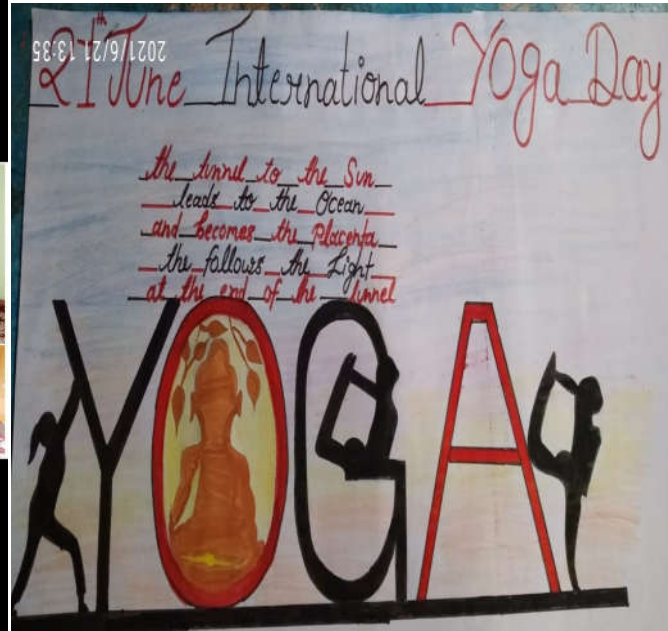 2021/6/21 13:35
21th June International Yoga Day
the tunnel to the Sun
leads to the Ocean
and becomes the Placenta
the follows the Light
at the end of the tunnel
YOGA